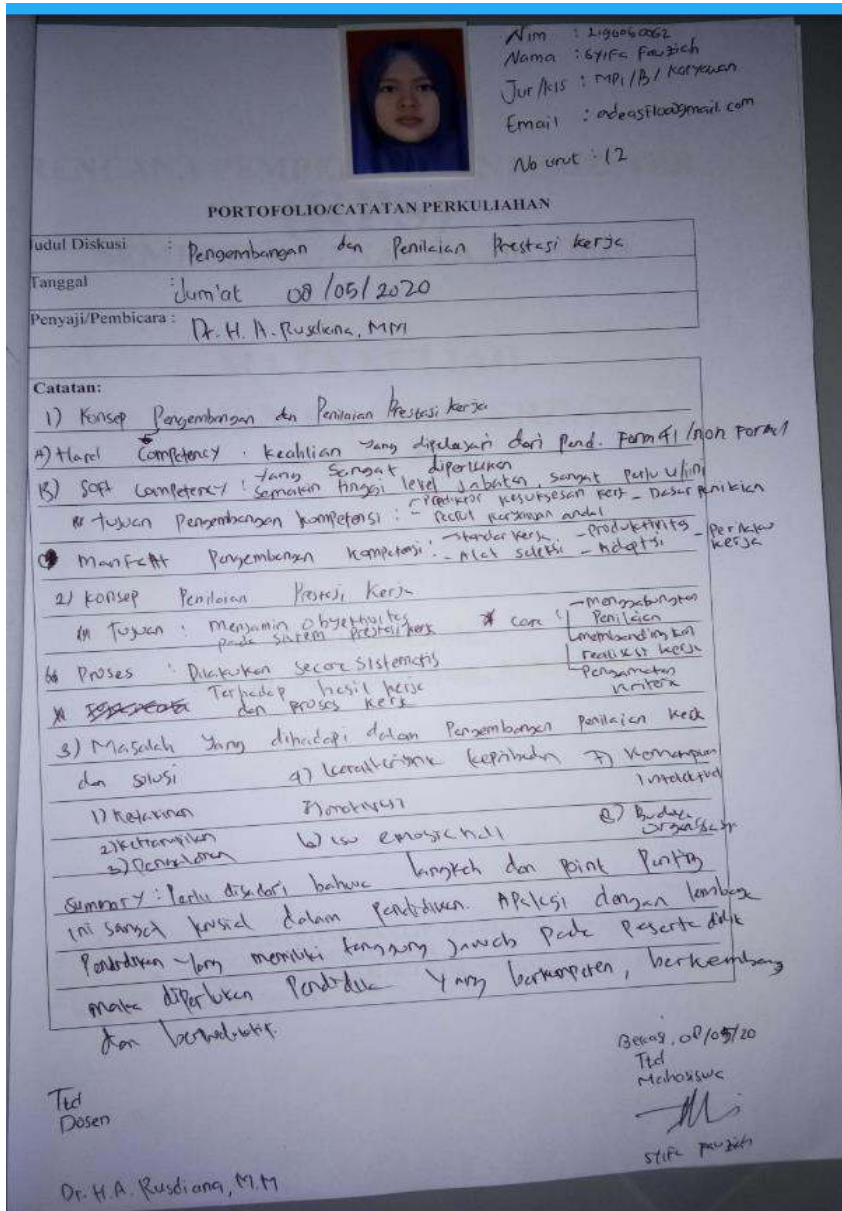 Nim : 2190060062
Nama : Syifa Fauziah
Jur/kls : MPI/B/ Karyawan
Email : adeasfloo@gmail.com
No urut : 12
PORTOFOLIO/CATATAN PERKULIAHAN
Judul Diskusi : Pengembangan dan Penilaian Prestasi kerja
Tanggal : Jum'at 08/05/2020
Penyaji/Pembicara : Dr. H. A. Rusdiana, MM
Catatan:
1) Konsep Pengembangan dan Penilaian Prestasi kerja
A) Hard Competency : keahlian yang dipelajari dari pend. Formal/non Formal
yang sangat diperlukan
B) Soft Competency : semakin tinggi level jabatan, sangat perlu
Tujuan Pengembangan kompetensi : - Prediktor kesuksesan kerja - Dasar penilaian
- recrut karyawan andal
Manfaat Pengembangan kompetensi : - Standar kerja - Produktivitas - Perilaku kerja
- Alat seleksi - Adaptsi
2) konsep Penilaian Prestasi Kerja
Tujuan : menjamin obyektivitas * cara : - menggabungkan Penilaian
pada sistem prestasi kerja - membandingkan realisasi kerja
Proses : Dilakukan secara sistematis - Pengamatan kriteria
Terhadap hasil kerja
dan proses kerja
3) Masalah yang dihadapi dalam Pengembangan penilaian kerja
dan solusi 4) karakteristik kepribadian 7) Kemampuan Intelektual
1) Keyakinan 5) motivasi
2) Keterampilan 6) isu emosional 8) Budaya organisasi
3) Pengalaman
Summary : Perlu disadari bahwa langkah dan point Penting
ini sangat krusial dalam pendidikan. APalagi dengan lembaga
Pendidikan yang memiliki tanggung jawab pada peserta didik
maka diperlukan Pendidik yang berkompeten, berkembang
dan
Bekasi, 08/05/20
Ttd
Mahasiswa
Syifa Fauziah
Ttd
Dosen
Dr. H. A. Rusdiana, M.M